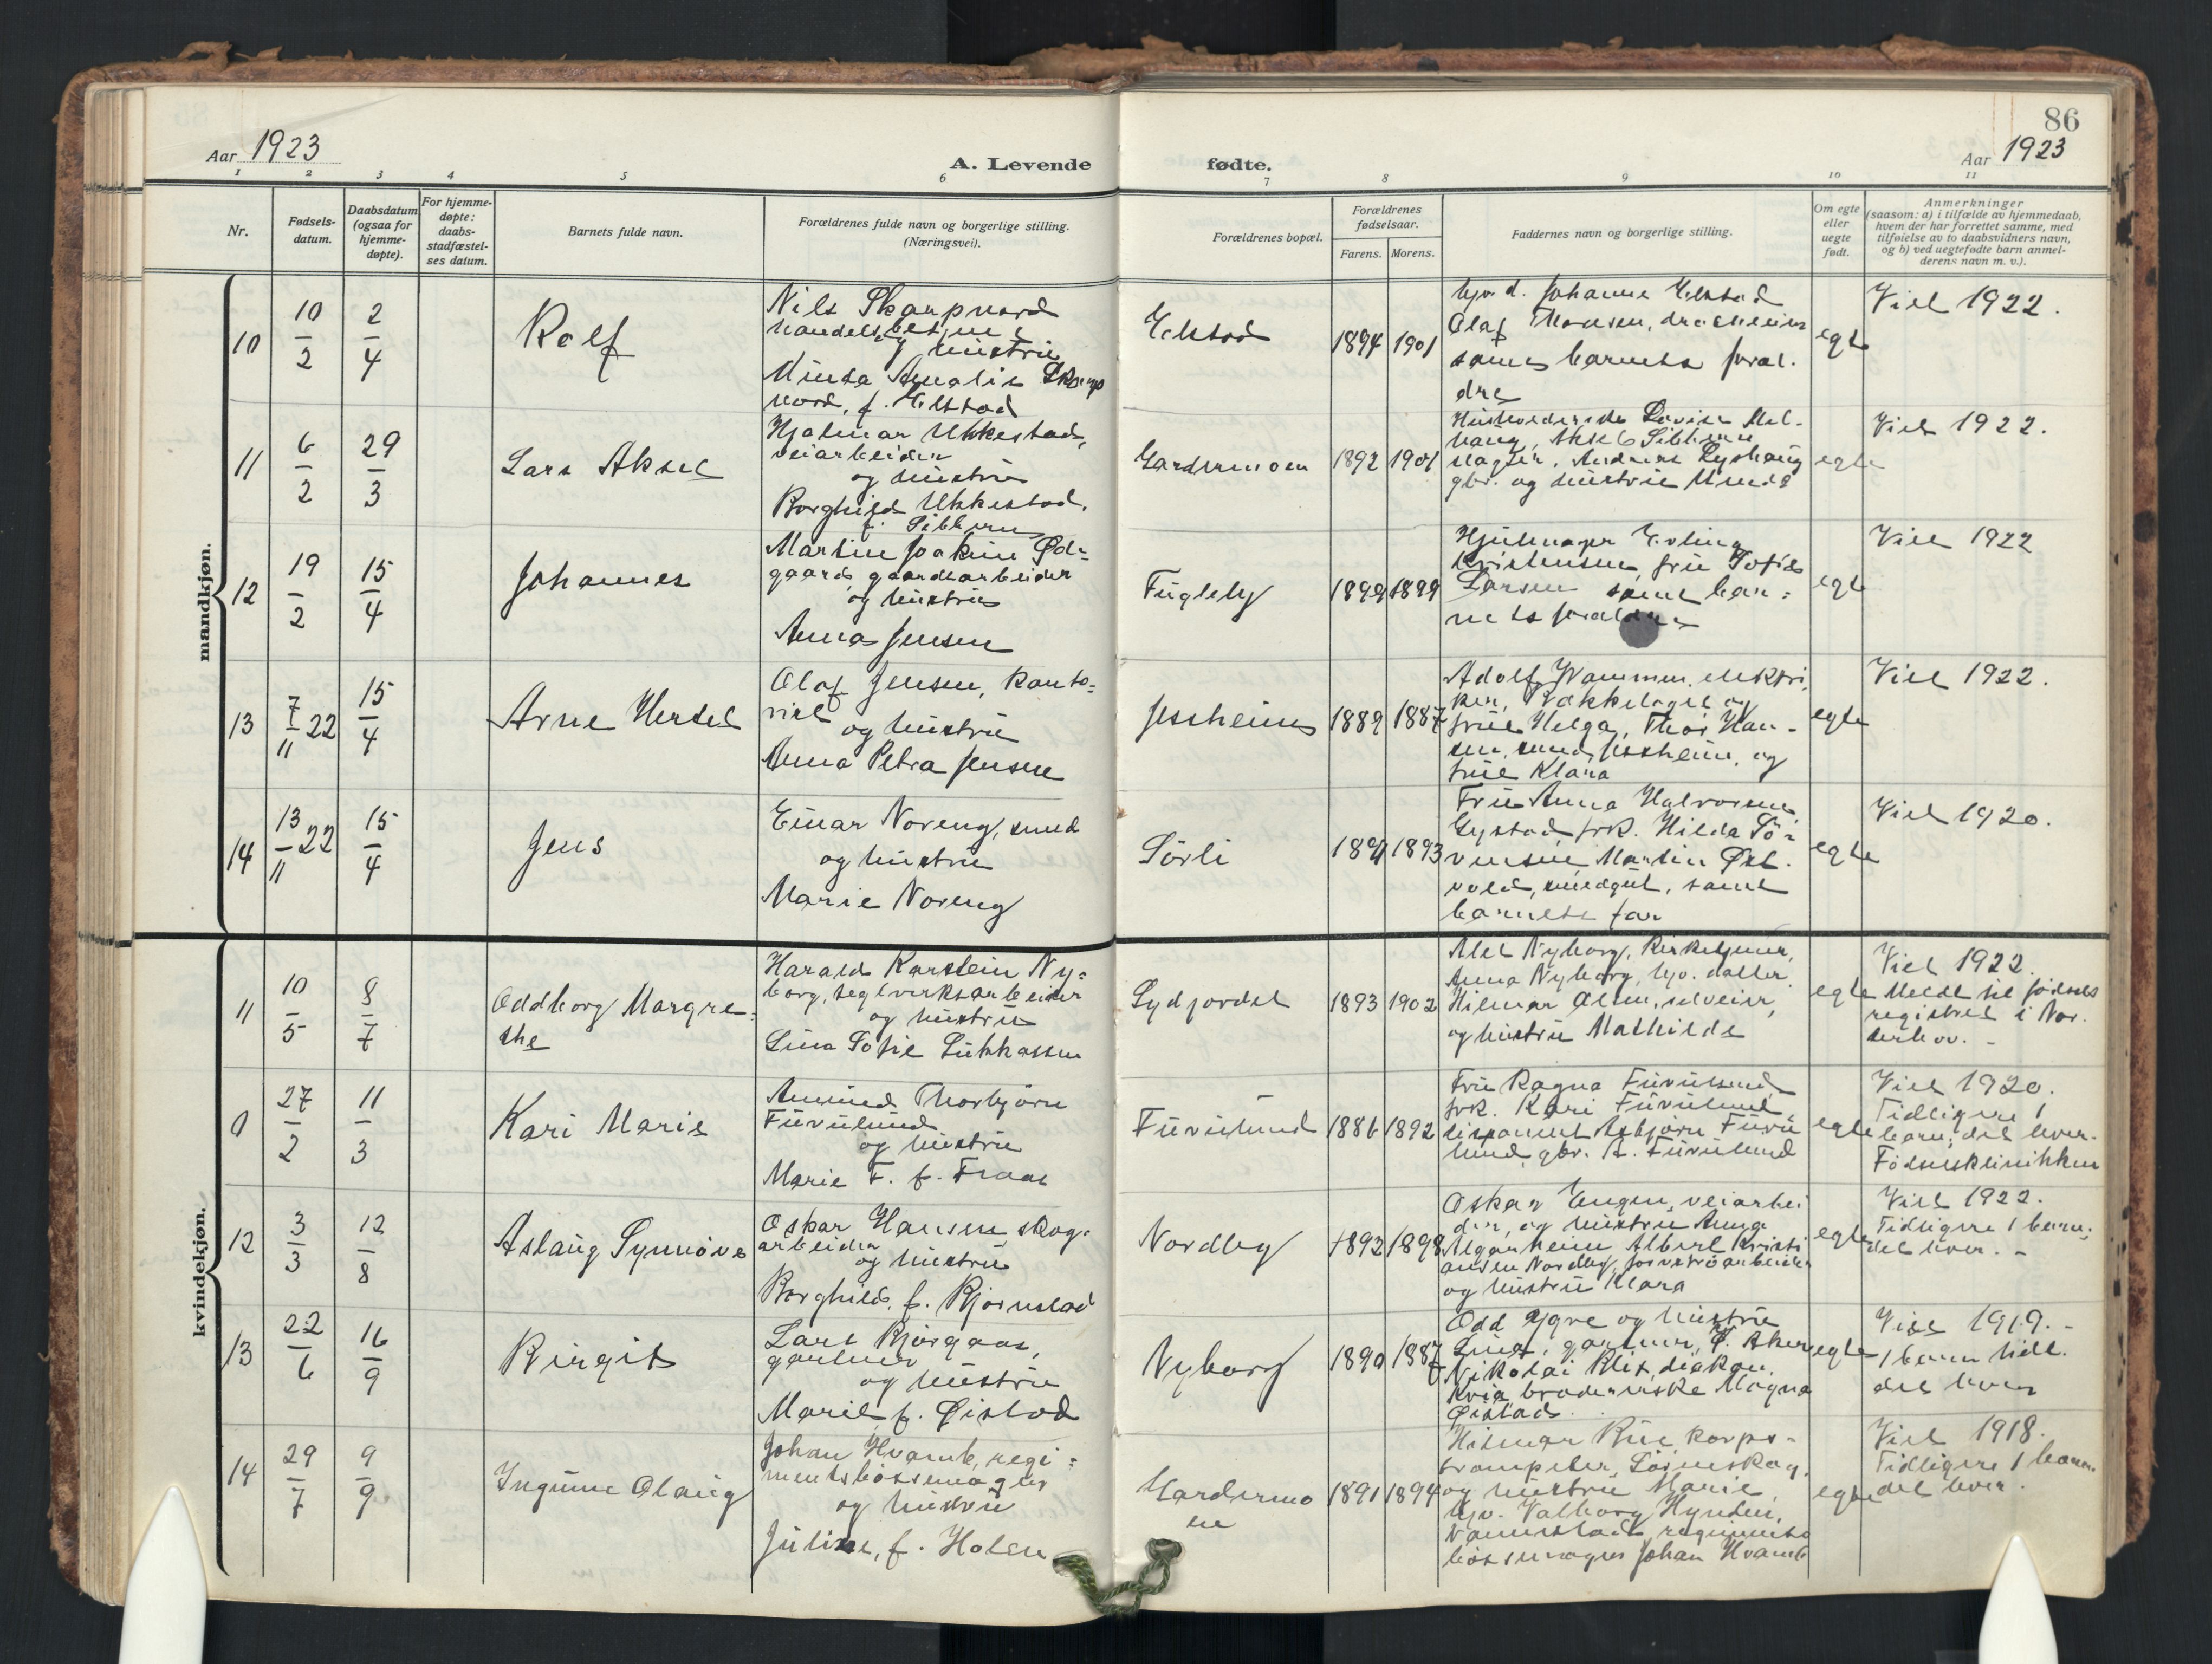 86
Aar 1923
A. Levende
fødte.
Aar 1923
1 2 3 4 5 6 7 8 9 10 11
Nr.
Fødsels-
datum.
Daabsdatum
(ogsaa for
hjemme-
døpte).
For hjemme-
døpte:
daabs-
stadfæstel-
ses datum.
Barnets fulde navn.
Forældrenes fulde navn og borgerlige stilling.
(Næringsvei).
Forældrenes bopæl.
Forældrenes
fødselsaar.
Farens. Morens.
Faddernes navn og borgerlige stilling.
Om egte
eller
uegte
født.
Anmerkninger
(saasom: a) i tilfælde av hjemmedaab,
hvem der har forrettet samme, med
tilføielse av to daabsvidners navn,
og b) ved uegtefødte barn anmel-
derens navn m. v.).
mandkjøn.
10
10/2
2/4
Rolf
Nils Skarpnord
handelsbestyrer
og hustru
Minda Amalie Skarp
nord, f. Elstad
Elstad
1894 1901
Johanne Elstad
Olaf
samt barnets foræl-
dre
egte
Viet 1922.
11
6/2
29/3
Lars Aksel
Hjalmar Ukkestad,
veiarbeider
og hustru
Borghild Ukkestad,
f. Sibbern
Gardermoen
1892 1901
gbr. og hustru
egte
Viet 1922.
12
19/2
15/4
Johannes
Martin Joakim Øde-
gaard, gaardsarbeider
og hustru
Anna Jensen
Fugleby
1899 1899
Hjulmager Erling
Kristensen, fru Sofie
Larsen samt bar-
nets forældre
egte
Viet 1922
13
7/11 22
15/4
Arne Hertel
Olaf Jensen, konto-
rist
og hustru
Anna Petra Jensen
Jessheim
1889 1887
Adolf Wammen, elektri
ker,
frue Helga, Thor Han-
sen, smed, Jessheim, og
frue Klara
egte
Viet 1922.
14
13/11 22
15/4
Jens
Einar Noreng, smed
og hustru
Marie Noreng
Sörli
1891 1893
Fru Anna Halvorsen,
Gystad, frk. Hilda Sö-
rensen, Martin Øst-
vold, smedgut, samt
barnets far
egte
Viet 1920.
kvindekjøn.
11
10/5
8/7
Oddborg Margre-
the
Harald Karstein Ny-
borg, teglverksarbeider
og hustru
Lina Sofie Lukkassen
Sydjordet
1893 1902
Nyborg, kirketjener,
Anna Nyborg, hjv. datter,
Hilmar Olsen, selveier,
og hustru Mathilde
egte
Viet 1922.
Meldt til fødsels
registret i Nor-
derhov. -
27/2
11/3
Kari Marie
Amund Thorbjörn
Furulund
og hustru
Marie F. f. Fraas
Furulund
1886 1892
Fru Ragna Furulund,
frk. Kari Furulund,
disponent Asbjörn Furu
lund, gbr. A. Furulund
egte
Viet 1920.
Tidligere 1
barn; det lever.
Fødselsklinikken
12
3/3
12/8
Aslaug Synnöve
Oskar Hansen, skog-
arbeider
og hustru
Borghild, f. Bjørnstad
Nordby
1892 1898
Oskar Engen, veiarbei
der, og hustru Anna
Algarheim, Albert Kristi
ansen Nordby, forströarbeider
og hustru Klara
egte
Viet 1922.
Tidligere 1 barn;
det lever. -
13
22/6
16/9
Birgit
Lars Bjørgaas,
gartner
og hustru
Marie, f. Øistad
Nyborg
1890 1887
Odd Ygre og hustru
gartner, Ø. Aker
Nikolai Klit, diakon,
broderenske Magna
Øistad.
egte
Viet 1919. -
1 barn tidl.
det lever
14
29/7
9/9
Ingunn Olaug
Johan Hvamb, regi-
mentsbössemager
og hustru
Juline, f. Holen
Gardermo
en
1891 1894
Hilmar Bue, korps-
trompeter, Lörenskog,
og hustru Marie,
hjv. Valborg
regiments
bössemager Johan Hvamb
egte
Viet 1918.
Tidligere 1 barn.
det lever.